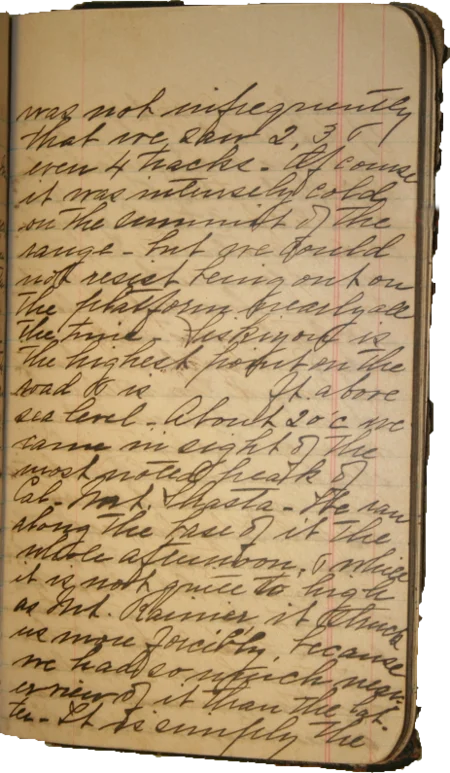 was not infrequently
that we saw 2, 3 &
even 4 tracks - Of course
it was intensely cold
on the summit of the
range - but we could
not resist being out on
the platform nearly all
the time - Siskiyou is
the highest point on the
road & is ft above
sea level - About 2 o c we
came in sight of the
most noted peak of
Cal - Mt Shasta - We ran
along the base of it the
whole afternoon, & while
it is not quite so high
as Mt. Rainier, it struck
us more forcibly, because
we had so much near-
er view of it than the lat-
ter - It is simply the